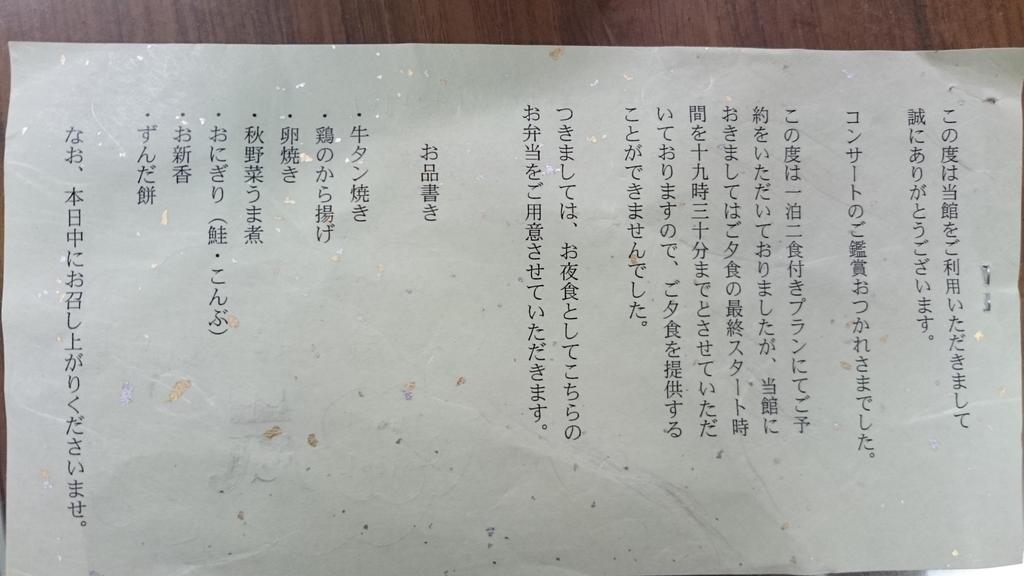 この度は当館をご利用いただきまして
誠にありがとうございます。
コンサートのご鑑賞おつかれさまでした。
この度は一泊二食付きプランにてご予
約をいただいておりましたが、当館に
おきましてはご夕食の最終スタート時
間を十九時三十分までとさせていただ
いておりますので、ご夕食を提供する
ことができませんでした。
つきましては、お夜食としてこちらの
お弁当をご用意させていただきます。
お品書き
・牛タン焼き
・鶏のから揚げ
・卵焼き
・秋野菜うま煮
・おにぎり（鮭・こんぶ）
・お新香
・ずんだ餅
なお、本日中にお召し上がりくださいませ。